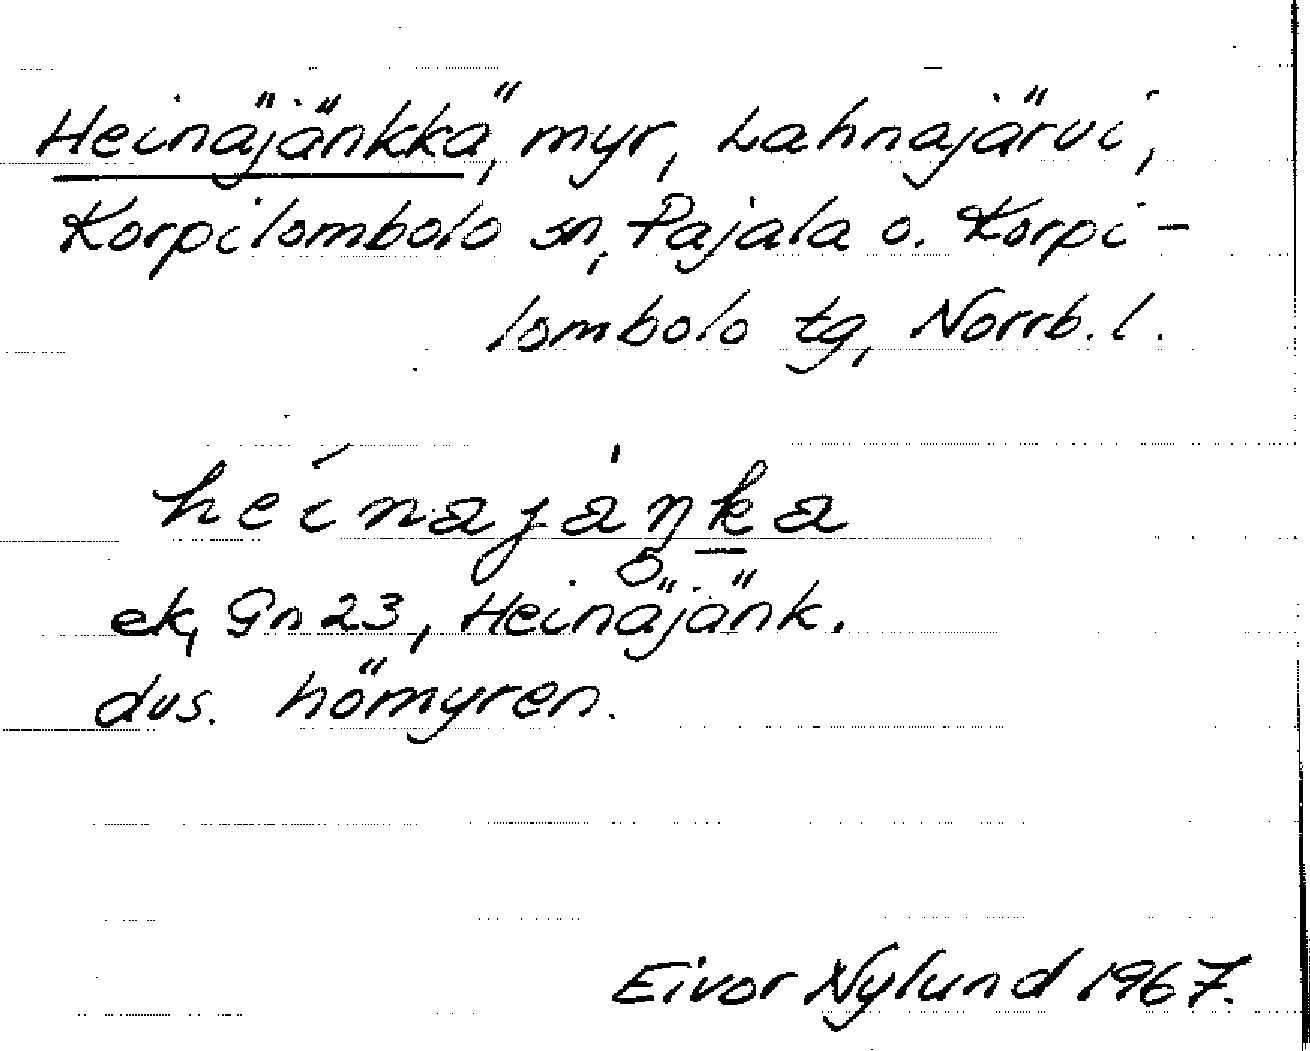 Heinäjänkkä, myr, Lahnajärvi,
Korpilombolo sn, Pajala o. Korpi-
lombolo tg, Norrb. l.
heinajaŋka
ek, Gn 23, Heinäjänk.
dvs. hömyren.
Eivor Nylund 1967.